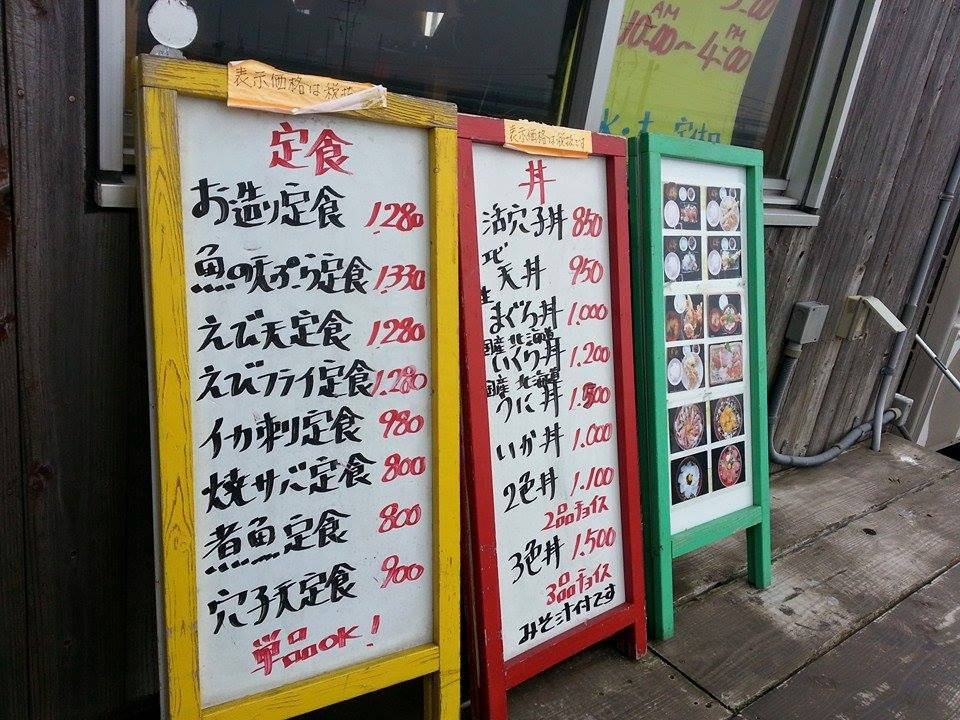 表示価格は税抜
定食
お造り定食 1.280
魚の天ぷら定食 1.330
えび天定食 1280
えびフライ定食 1.280
イカ刺定食 980
焼サバ定食 800
煮魚定食 800
穴子天定食 900
単品OK!
表示価格は税抜です
丼
活穴子丼 850
エビ
天丼 950
生
まぐろ丼 1.000
国産 北海道
いくら丼 1.200
国産 北海道
うに丼 1.500
いか丼 1.000
2色丼 1.100
2品チョイス
3色丼 1.500
3品チョイス
みそ汁付です
AM PM
10:00～4:00